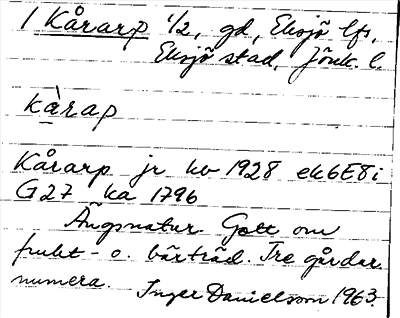 1 Kårarp 1/2, gd, Eksjö lfs,
Eksjö stad, Jönk. l.
kàrap
Kårarp jr kv 1928 ek6E8i
G27 ka 1796
Ängsnatur. Gott om
frukt- o. bärträd. Tre gårdar
numera. Inger Danielsson 1963.